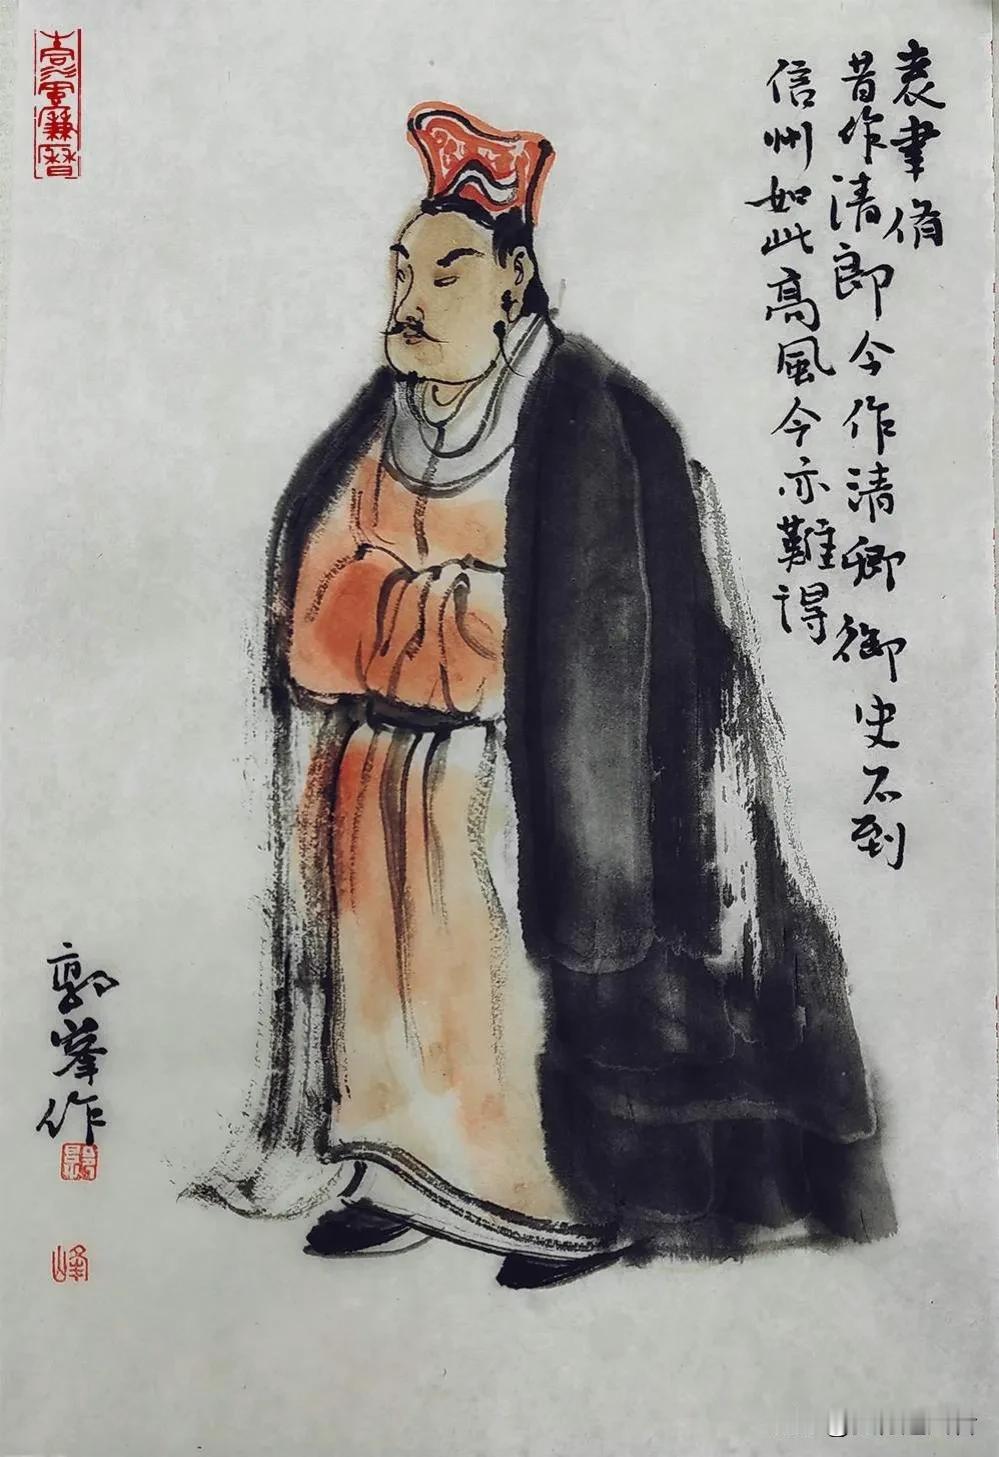 袁聿脩
昔作清郎今作清卿御史不到
信州如此高風今亦難得
郭峯作
峰